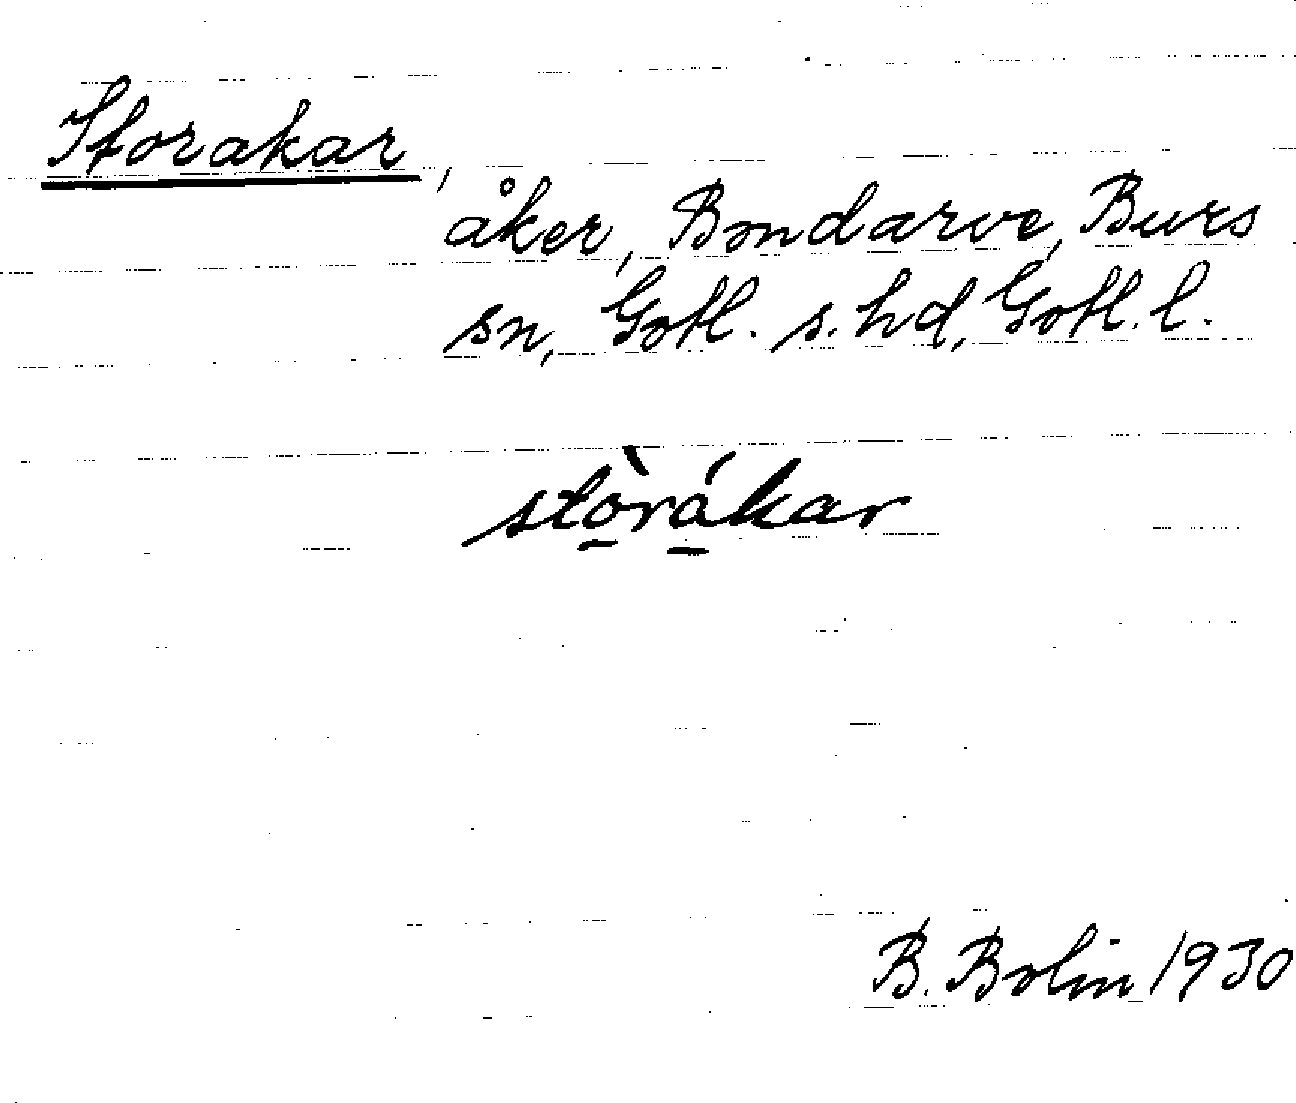 Storakar,
åker, Bondarve, Burs
sn, Gotl. s. hd, Gotl. l.
stò̱rá̱kar
B. Bolin 1930